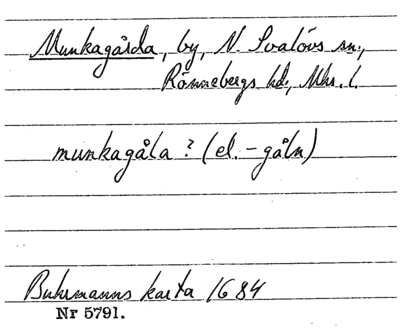 Munkagårda, by, N. Svalövs sn.,
Rönnebergs hd., Mhs. l.
munkagåla ? (el. -gåln)
Buhrmanns karta 1684
Nr 5791.